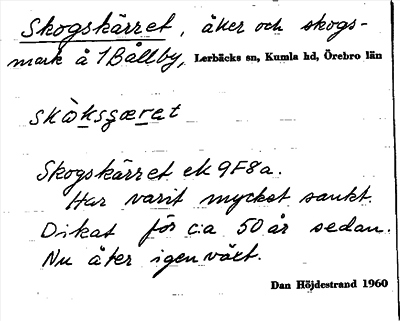 Skogskärret, åker och skogs-
mark å 1 Bållby, Lerbäcks sn, Kumla hd, Örebro län
skòksçæret
Skogskärret ek 9F8a.
Har varit mycket sankt.
Dikat för c:a 50 år sedan.
Nu åter igenväxt.
Dan Höjdestrand 1960